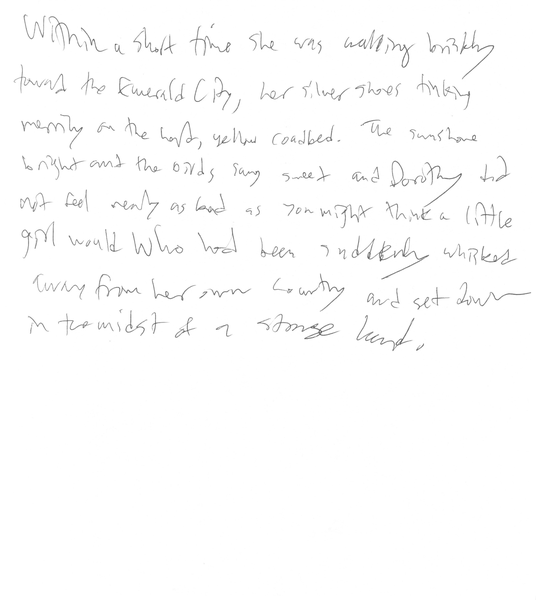 Within a short time she was walking briskly
toward the Emerald City, her silver shoes tinkling
merrily on the hard, yellow roadbed. The sun shone
bright and the birds sang sweet and Dorothy did
not feel nearly as bad as you might think a little
girl would who had been suddenly whisked
away from her own country and set down
in the midst of a strange land.